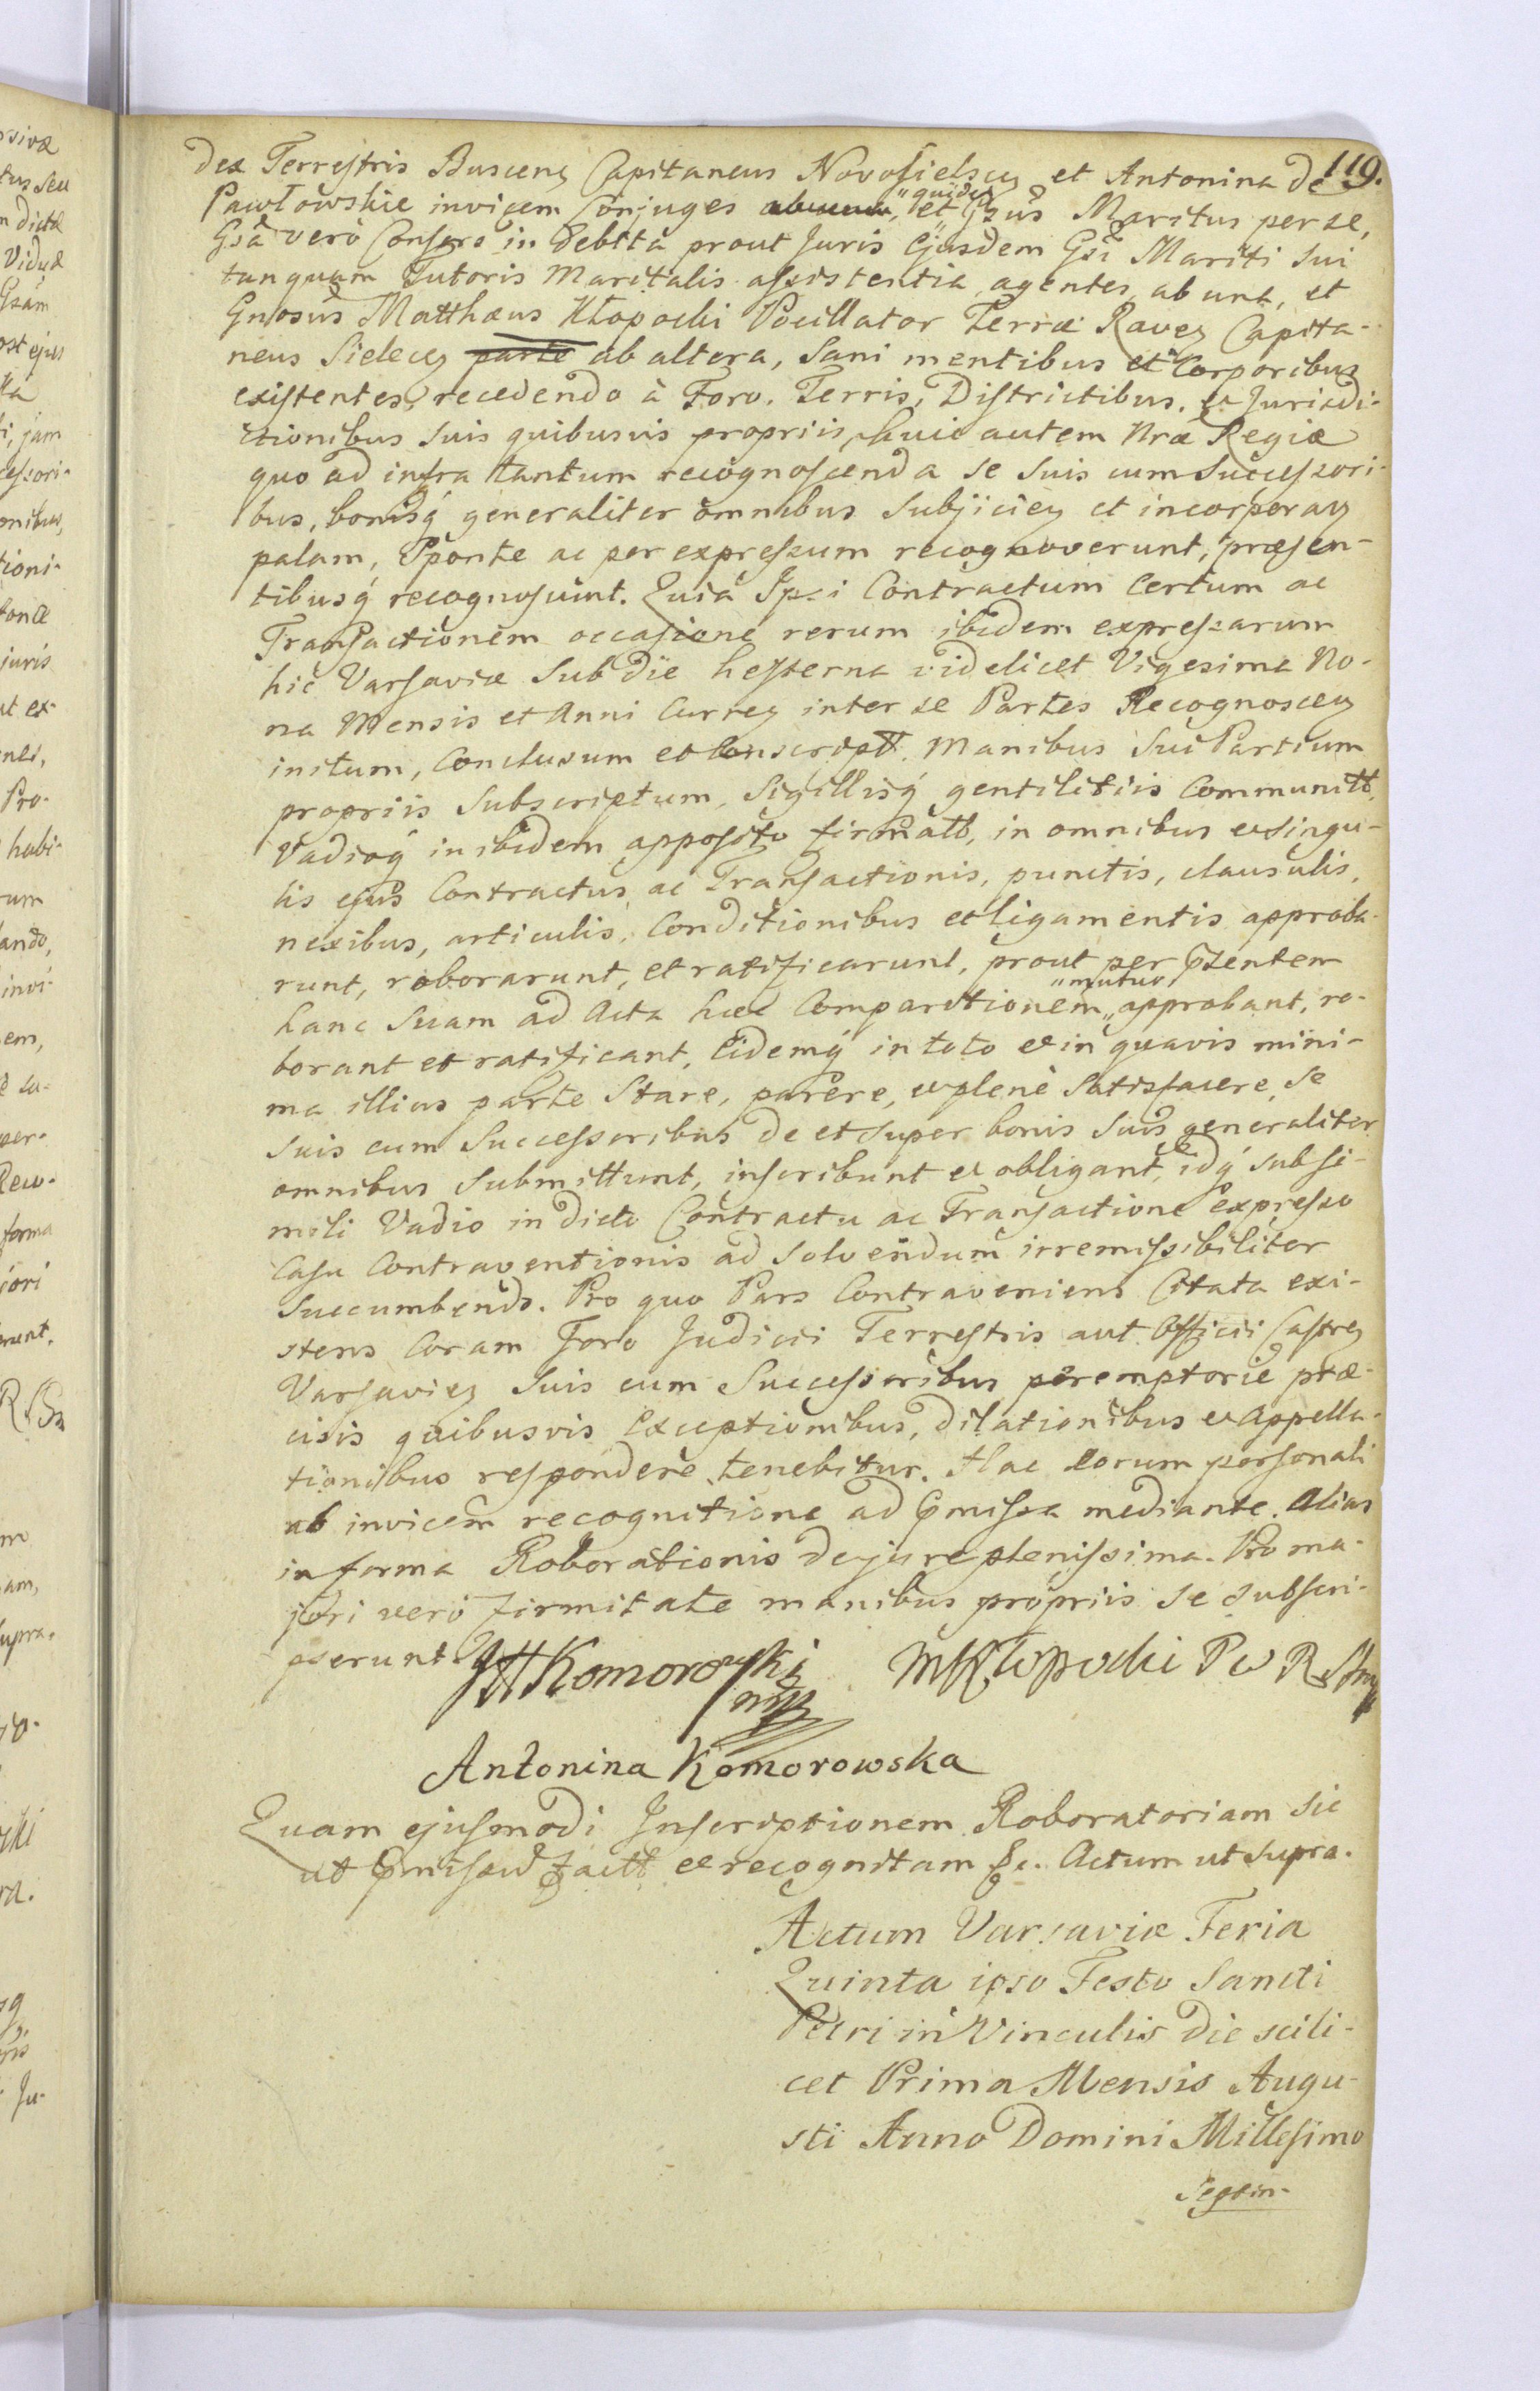 119.
dex Terrestris Buscens Capitaneus Novosielscens et Antonina de
Pawłowskie invicem Conjuges ab una, "quidem" et Gsus Maritus per se,
Gsa verò Consors in debita prout Juris Ejusdem Gsi Mariti sui
tanquam Tutoris Maritalis assistentia agentes, ab una, et
Gnosus Matthæus Kłopocki Pocillator Terræ Ravens Capita-
neus Sielecens parte ab altera, sani mentibus et Corporibus
existentes, recedendo à Foro, Terris, Districtibus, et Jurisdi-
ctionibus suis quibusvis propriis, huic autem Nræ Regiæ
quo ad infra tantum recognoscenda se suis cum Successori-
bus, bonisq́ generaliter omnibus subjicien et incorporan
palam, sponte ac per expressum recognoverunt, præsen-
tibusq́ recognoscunt. Quia Ipsi Contractum Certum ac
Transactionem occasione rerum ibidem expressarum
hic Varsaviæ sub die hesterna videlicet Vigesima No-
na Mensis et Anni Curren inter se Partes Recognoscen
initum, Conclusum et Conscriptt. Manibus Sui Partium
propriis Subscriptum, Sigillisq́ gentilitiis Communitt,
Vadioq́ inibidem apposito firmatt, in omnibus et singu-
lis ejus Contractus ac Transactionis, punctis, clausulis,
nexibus, articulis, Conditionibus et ligamentis approba-
runt, roborarunt, et ratificarunt, prout per præsentem
hanc suam ad Acta hæc Comparitionem "mutuo" approbant, ro-
borant et ratificant, Eidemq́ in toto et in quavis mini-
ma illius parte stare, parere, et plenè satisfacere, se
suis cum Successoribus de et super bonis suis generaliter
omnibus submittunt, inscribunt et obligant, idq́ sub si-
mili Vadio in dicto Contractu ac Transactione expresso
Casu Contraventionis ad solvendum irremissibiliter
succumbendo. Pro quo Pars Contraveniens Citata exi-
stens Coram Foro Judicii Terrestris aut Officii Castren
Varsavien suis cum Successoribus peremptorie præ-
cisis quibusvis Exceptionibus, dilationibus et appella-
tionibus respondere tenebitur. Hac Eorum personali
ab invicem recognitione ad præmissa mediante. Alias
in forma Roborationis de jure plenissima. Pro ma-
jori verò firmitate manibus propriis se subscri-
pserunt
Komorowski mp MKłopocki P W R
Antonina Komorowska
Quam ejusmodi Inscriptionem Roboratoriam sic
ut præmissum factt et recognitam &c. Actum ut supra.
Actum Varsaviæ Feria
Quinta ipso Festo Sancti
Petri in Vinculis die scili-
cet Prima Mensis Augu-
sti Anno Domini Millesimo
Septin-